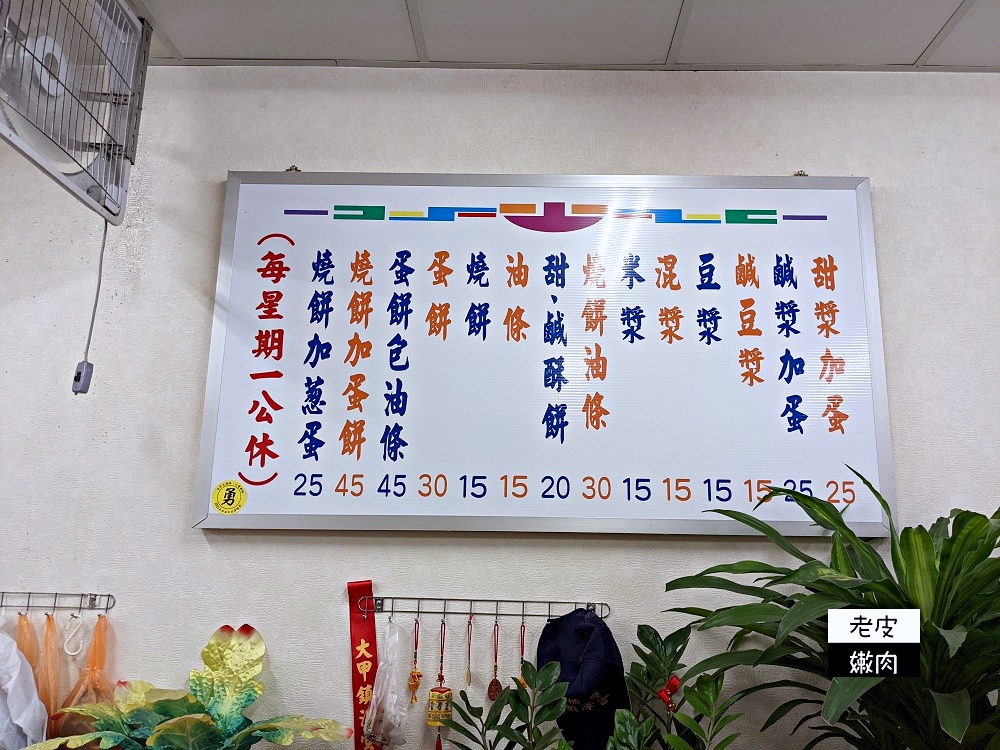 甜漿加蛋 25
鹹漿加蛋 25
鹹豆漿 15
豆漿 15
混漿 15
米漿 15
燒餅油條 30
甜、鹹酥餅 20
油條 15
燒餅 15
蛋餅 30
蛋餅包油條 45
燒餅加蛋餅 45
燒餅加蔥蛋 25
(每星期一公休)
勇
大甲鎮
老皮
嫩肉